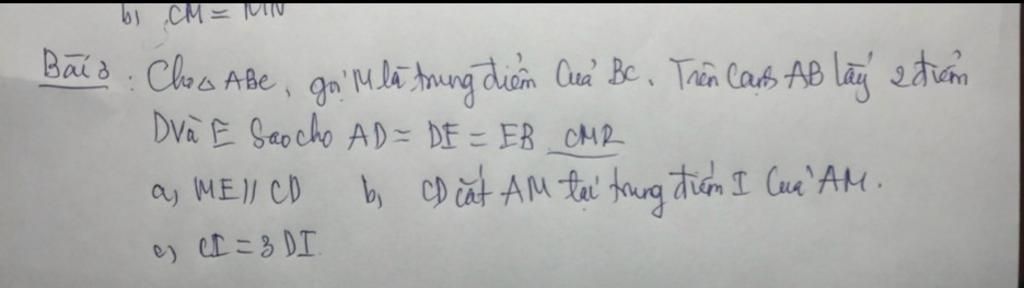 b, CM = MN
Bài 3: Cho △ ABC, gọi M là trung điểm của BC. Trên cạnh AB lấy 2 điểm
D và E sao cho AD = DE = EB CMR
a, ME // CD b, CD cắt AM tại trung điểm I của AM.
c, CI = 3 DI.